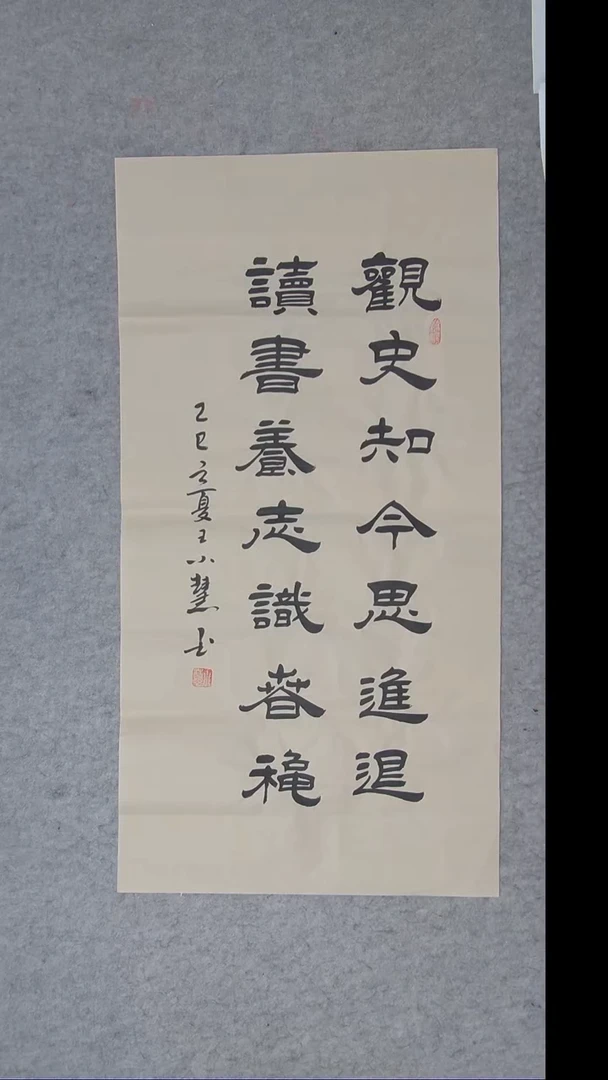 觀史知今思進退
讀書養志識春穐
乙巳立夏王小慧书